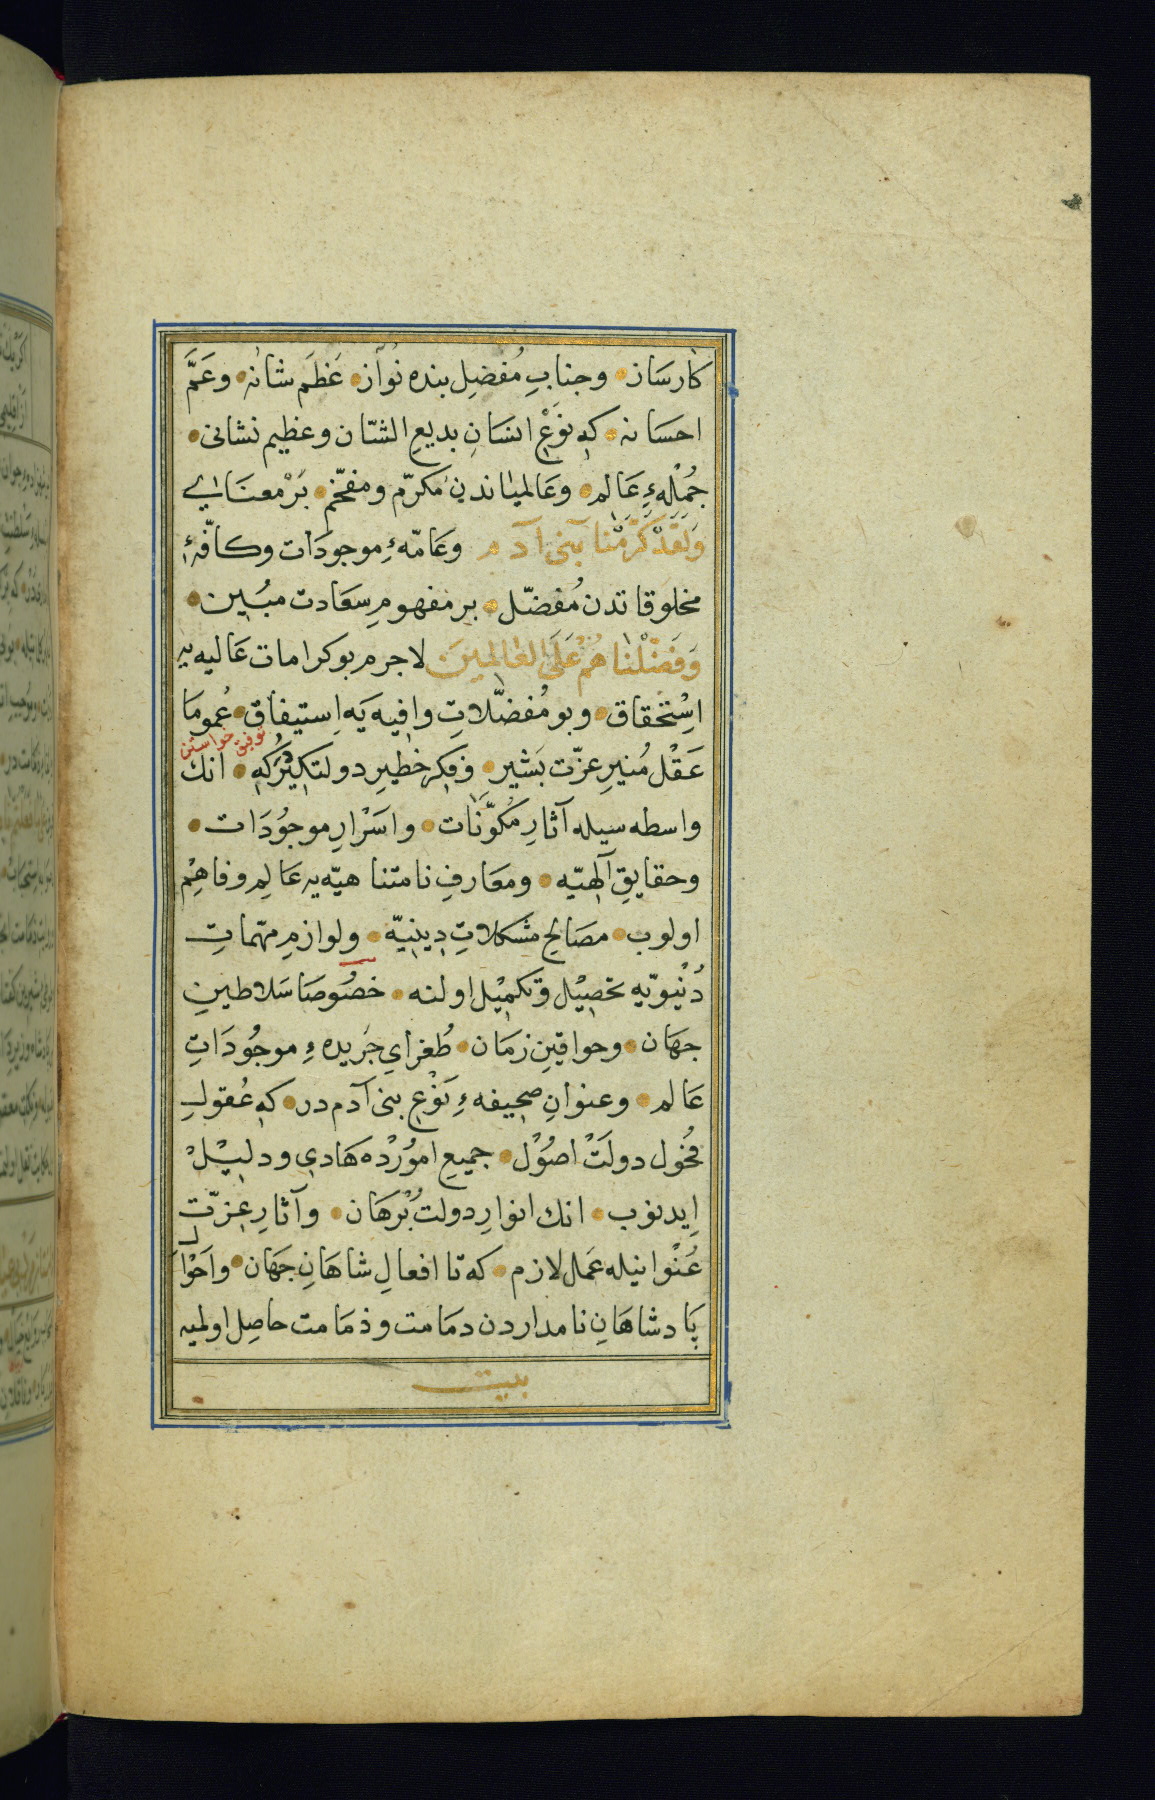 كارساز وجنابِ مُفضِل بنده نُوآز عَظَم شانُه وعَمَّ
احسانه كه نَوْعِ انسانِ بديعِ الشّان وعظيم نشانى
جُمْلهءِ عَالم وعَالميٰاندين مكرّم ومفخّم بَرْ معنَاىِ
وَلَقَدْ كَرَّمْنا بَنى آدم وعَامّهءِ موجودَات وكافّهءِ
مخلوقاتدن مُفضّل بر مفهومِ سعَادت مبُين
وَفَضَّلْنٰاهُمْ عَلَى العٰالمِينَ لاجرم بو كرامات عَاليه يه
اِسْتحْقاق وبو مُفضّلاتِ وافيه يَه اِستيفاق عُمومَا
توفيق خواستن
عَقْل مُنيرِ عزّت بَشير وفكر خطيرِ دولتكثيرُكه انك
واسطه سيله آثارِ مُكوّنَات واسَرْارِ موجوُدَات
وحقايقِ آلٰهيّه ومعَارفِ نامتناهيّه يه عَالِم وفاهِمْ
اولوب مصَالحِ مشكلاتِ دينيّه ولوازمِ مهمّاتِ
دُنْيويّه تحصيْل وتكميْل اولنه خصُوصَا سَلاطينِ
جهَان وخواقينِ زمَان طُغراىِ جَريدهءِ موجُودَاتِ
عَالم وعنوانِ صحيفهءِ نَوْعِ بنى آدم در كه عُقولِ
فُحُول دولَتْ اصُوْل جميعِ امُوُرْده هَادى ودليْلْ
اِيدنوب انك انوارِ دولت بُرْهَان وآثارِ عزّت
عُنْوانيله عَمل لازم كه تا افعالِ شاهَانِ جَهَان واَحْوَالِ
پَادشاهَانِ نامداردن دمَامت وذمَامت حاصِل اولميه
بيت